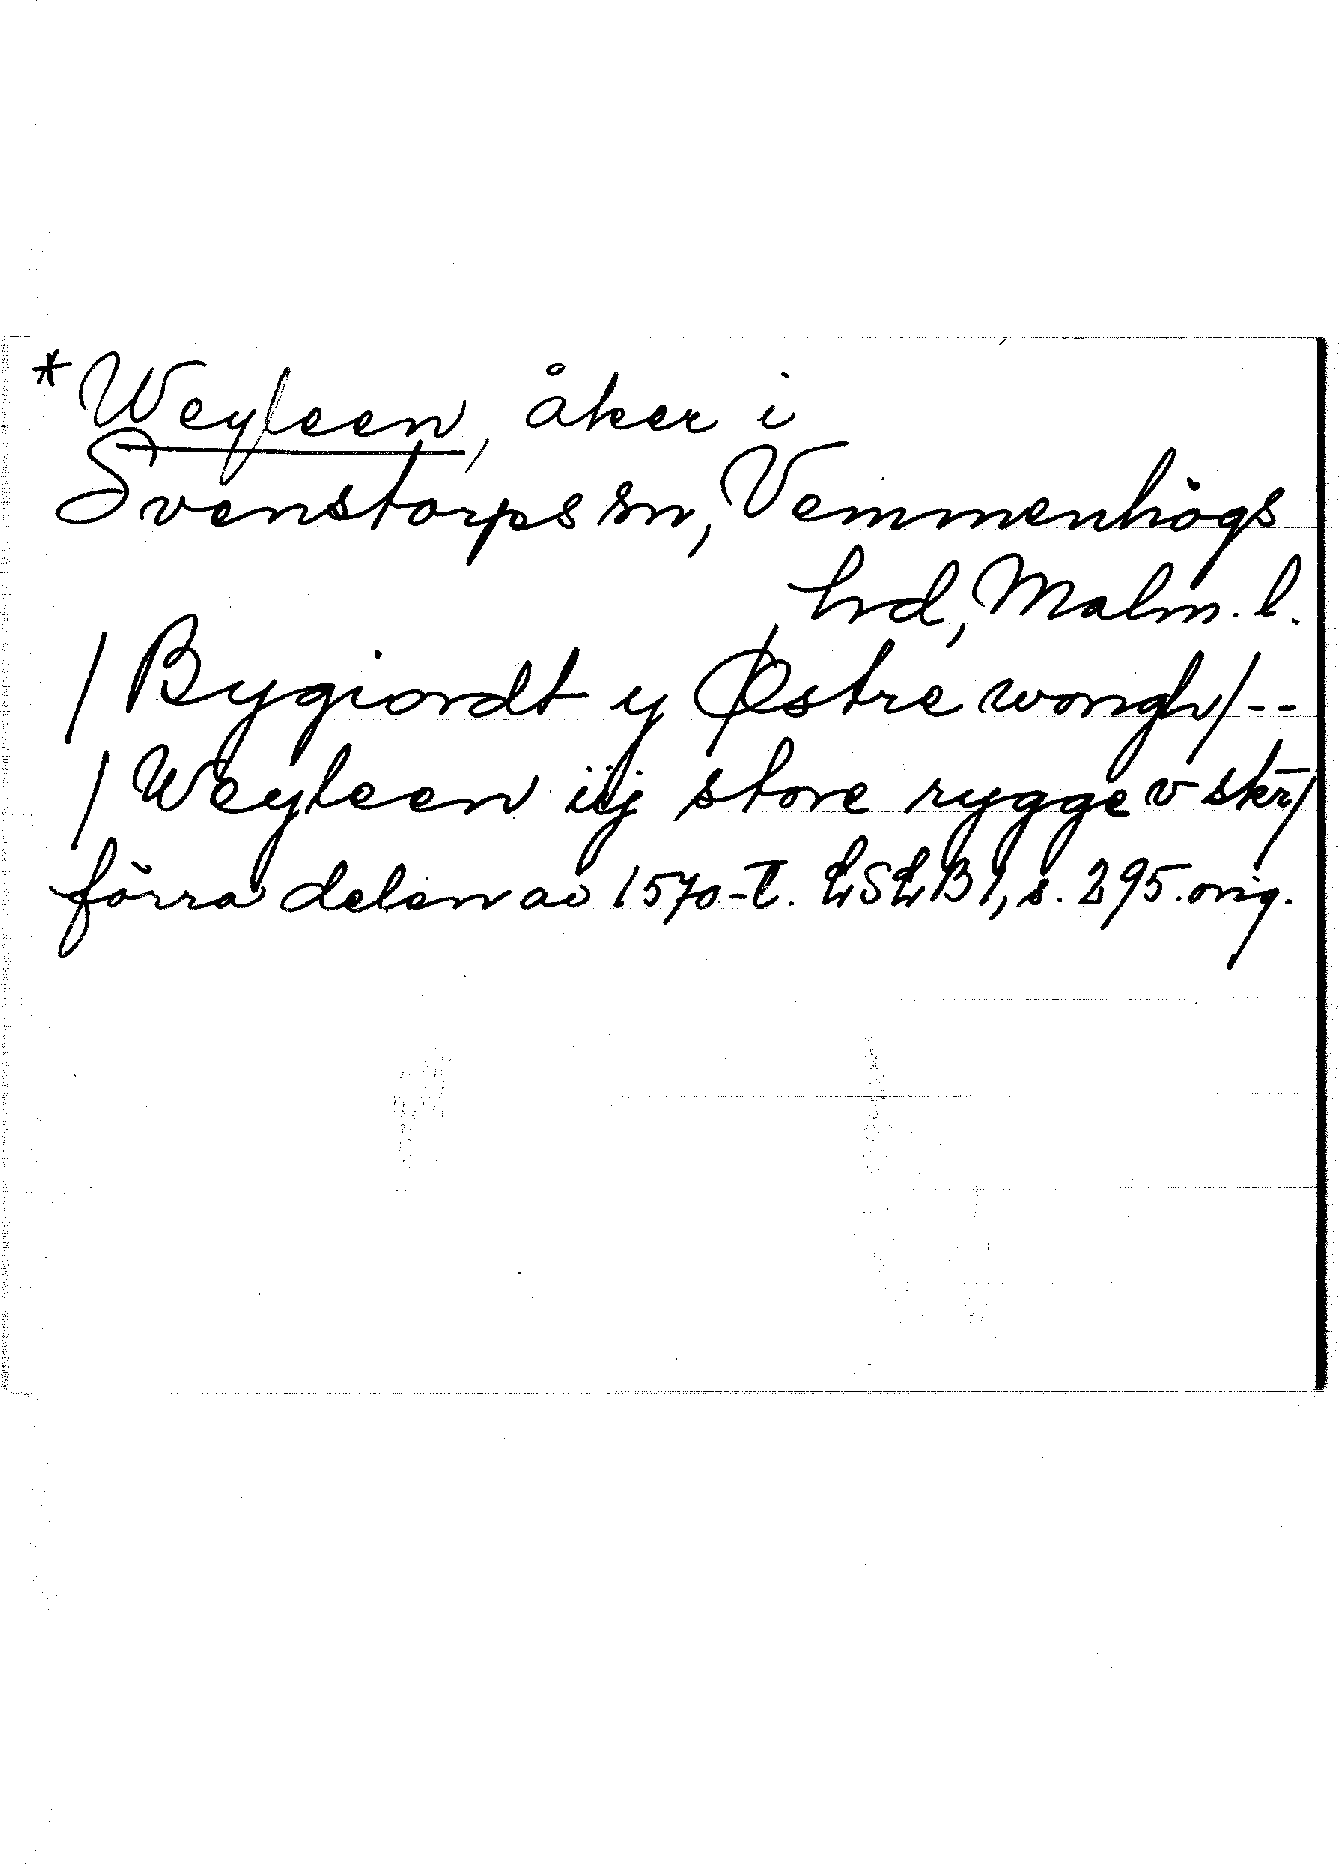 *Weyleen, åker i
Svenstorps sn, Vemmenhögs
hd, Malm. l.
/ Bygiordt y Østre wongh / --
/ Weyleen iij store rygge v skr̄ /
förra delen av 1570-t. LSLB 1, s. 295. orig.